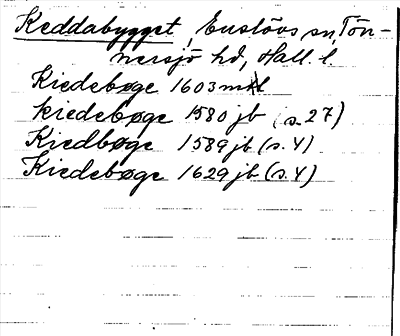 Keddabygget, Enslövs sn, Tön-
nersjö hd, Hall. l.
Kiedebøge 1603 mtl
kiedebøge 1580 jb (s. 27)
Kiedbøge 1589 jb (s. 4)
Kiedebøge 1629 jb (s. 4)